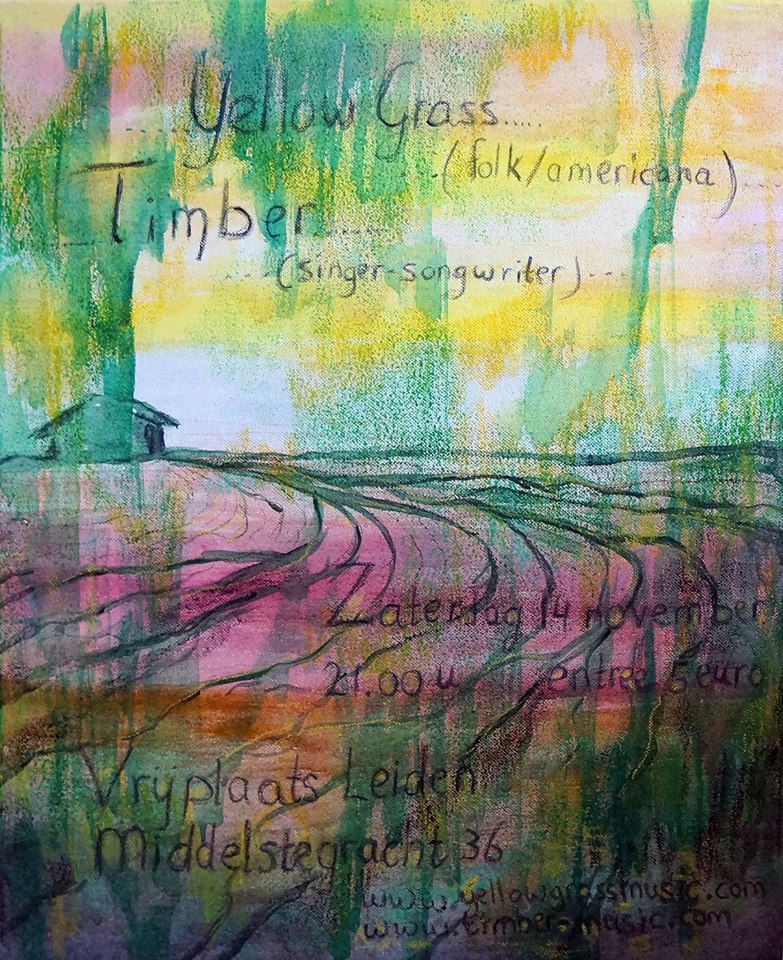 .....Yellow Grass.....
...(folk/americana)...
....Timber.....
....(singer-songwriter)...
Zaterdag 14 november
21.00 u entree 5 euro
Vrijplaats Leiden
Middelstegracht 36
www.yellowgrassmusic.com
www.timber-music.com